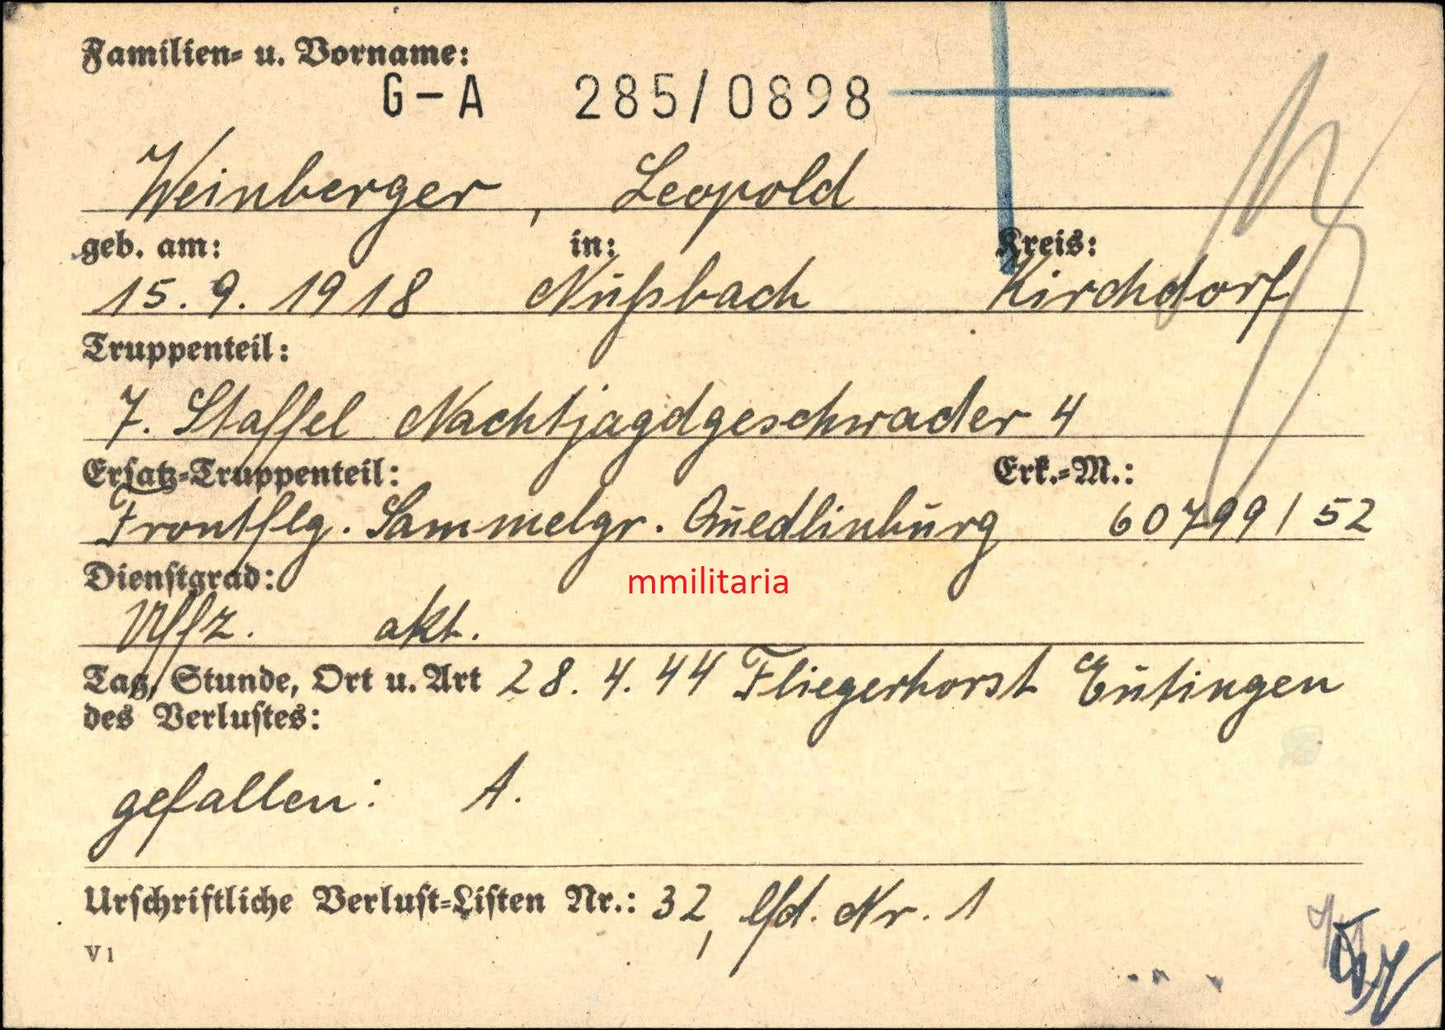 Familien- u. Vorname:
G-A 285/0898
Weinberger, Leopold
geb. am: in: Kreis:
15.9.1918 Nußbach Kirchdorf
Truppenteil:
7. Staffel Nachtjagdgeschwader 4
Ersatz-Truppenteil: Erk.-M.:
Frontflg. Sammelgr. Quedlinburg 60799/52
Dienstgrad:
mmilitaria
Uffz. akt.
Tag, Stunde, Ort u. Art 28.4.44 Fliegerhorst Eutingen
des Verlustes:
gefallen: A.
Urschriftliche Verlust-Listen Nr.: 32, lfd. Nr. 1
V1